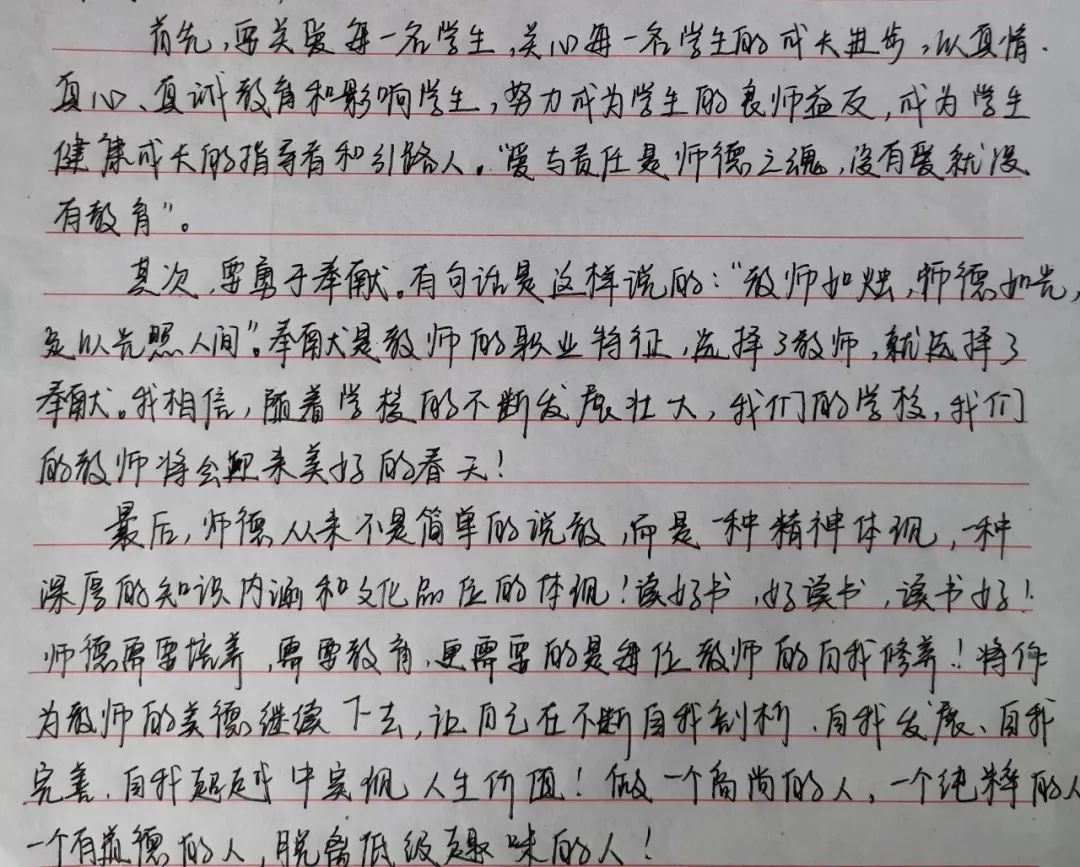 首先,要关爱每一名学生,关心每一名学生的成长进步,以真情、
真心、真诚教育和影响学生,努力成为学生的良师益友,成为学生
健康成长的指导者和引路人。“爱与责任是师德之魂,没有爱就没
有教育”。
其次,要勇于奉献。有句话是这样说的:“教师如烛,师德如光,
定以光照人间”。奉献是教师的职业特征,选择了教师,就选择了
奉献。我相信,随着学校的不断发展壮大,我们的学校,我们
的教师将会迎来美好的春天!
最后,师德从来不是简单的说教,而是一种精神体现,一种
深厚的知识内涵和文化品位的体现!读好书,好读书,读书好!
师德需要培养,需要教育,更需要的是每位教师的自我修养!将作
为教师的美德继续下去,让自己在不断自我剖析、自我发展、自我
完善、自我超越中实现人生价值!做一个高尚的人,一个纯粹的人
一个有道德的人,脱离低级趣味的人!